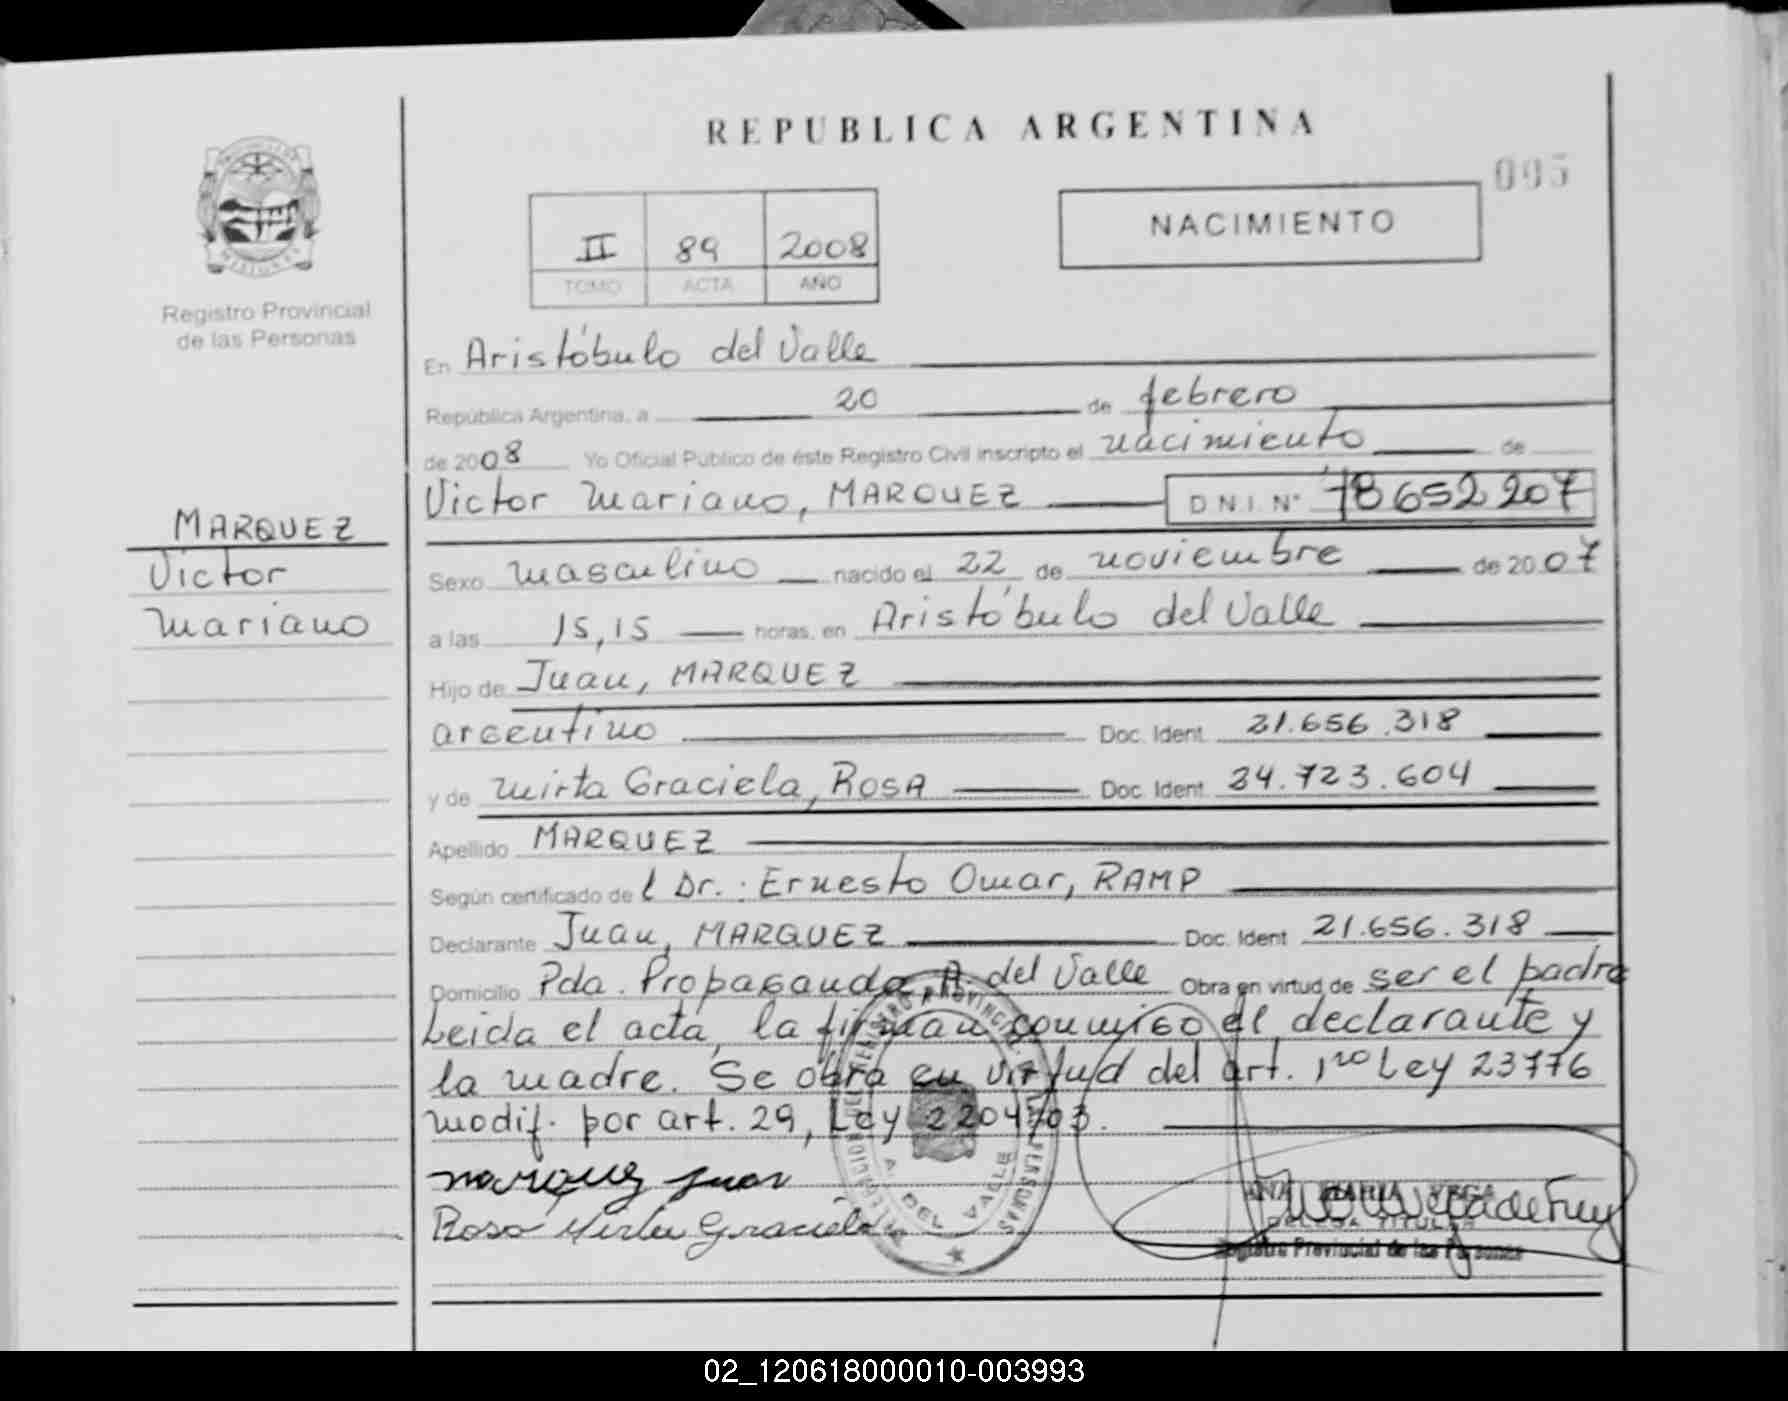 REPUBLICA ARGENTINA
005
NACIMIENTO
II 89 2008
TOMO ACTA AÑO
Registro Provincial
de las Personas
MARQUEZ
Victor
Mariano
En Aristóbulo del Valle
República Argentina, a 20 de febrero
de 2008 Yo Oficial Público de éste Registro Civil inscripto el nacimiento de
Victor Mariano, MARQUEZ D N I N° 78652207
Sexo masculino nacido el 22 de noviembre de 2007
a las 15,15 horas, en Aristóbulo del Valle
Hijo de Juan, MARQUEZ
argentino Doc. Ident. 21.656.318
y de Mirta Graciela, ROSA Doc. Ident. 34.723.604
Apellido MARQUEZ
Según certificado de l Dr.: Ernesto Omar, RAMP
Declarante Juan, MARQUEZ Doc. Ident. 21.656.318
Domicilio Pda. Propaganda A. del Valle Obra en virtud de ser el padre
Leida el acta, la firman conmigo el declarante y
la madre. Se obra en virtud del art. 1ro Ley 23776
modif. por art. 29, Ley 2204/03.
marquez juan
Rosa Mirta Graciela
A. DEL VALLE
ANA MARIA VEGA
TITULAR
Registro Provincial de las Personas
02_120618000010-003993